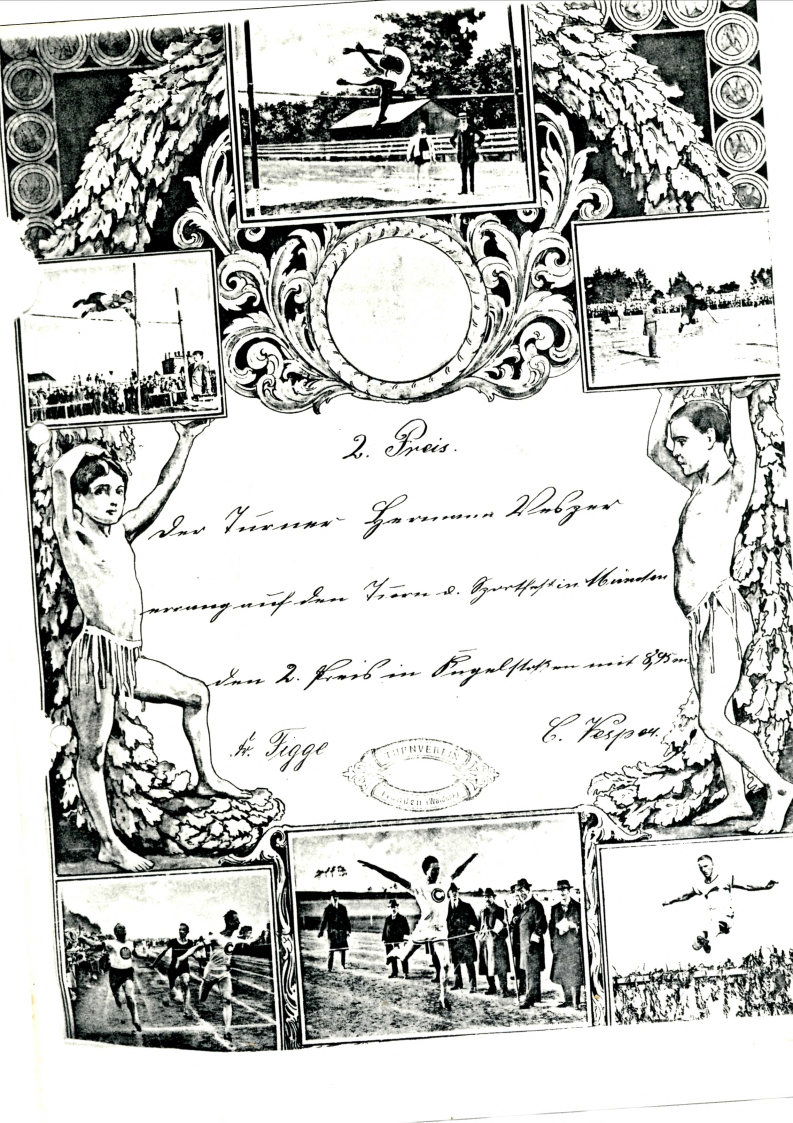 2. Preis.
Der Turner Hermann Vesper
errang auf den Turn u. Sportfest in
den 2. Preis in Kugelstoßen mit 8,95 m
Fr. Figge
C. Vesper.
TURNVEREIN